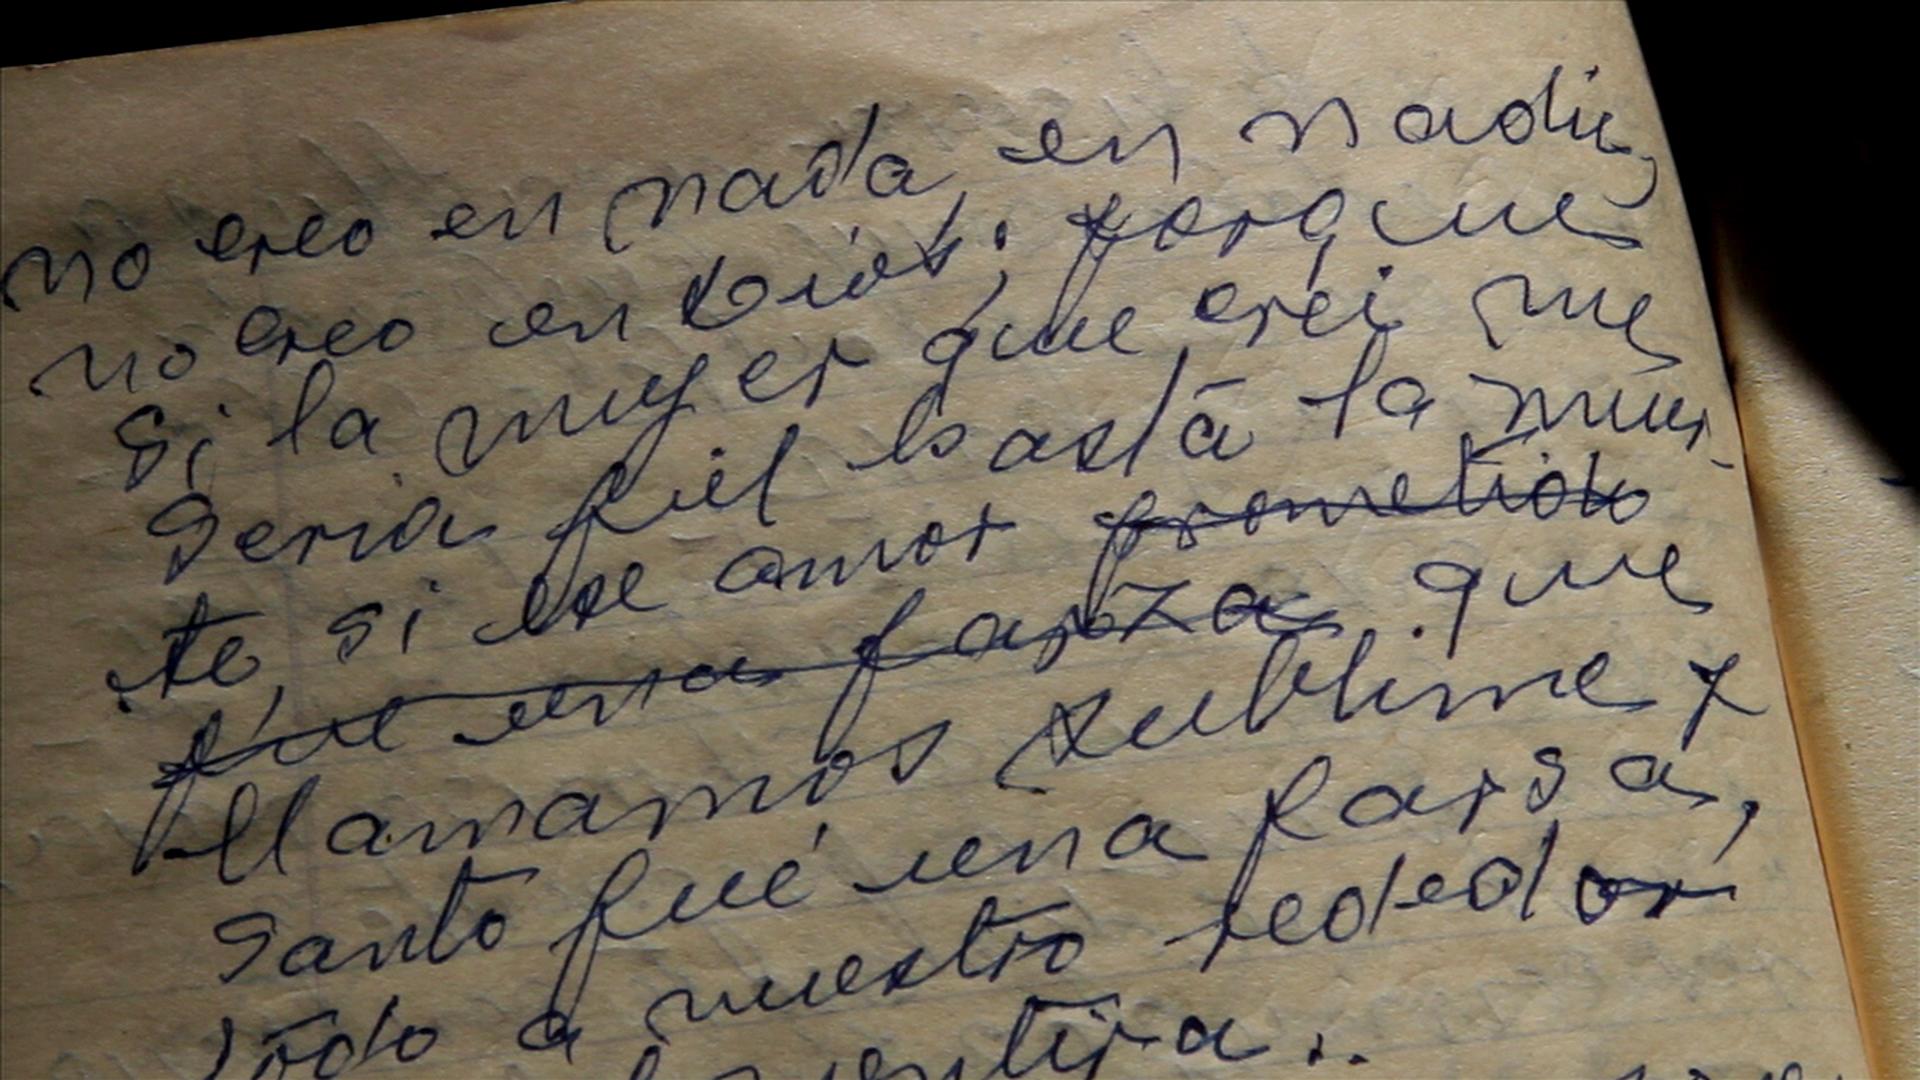 no creo en nada, en nadie,
no creo en Diós; porque
si la mujer que creí me
seria fiel hasta la muer-
te, si ese amor prometido
fué una farza que
llamamos sublime y
santo fué una farsa,
todo a nuestro rededor
mentira...